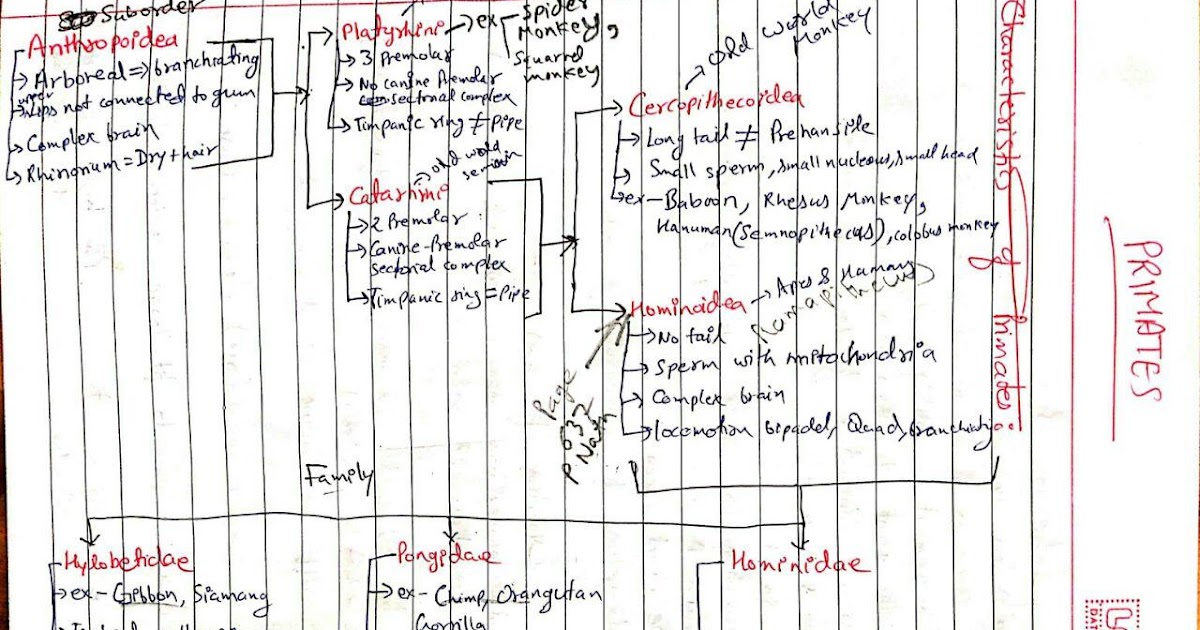 Suborder
Anthropoidea
→ Arboreal => branchiating
→ upper Lips not connected to gum
→ Complex brain
→ Rhinorium = Dry + hair
Platyrhini → ex
Spider
Monkey,
Squarrel
monkey
→ 3 Premolar
→ No canine Premolar
sectorial complex
→ Timpanic ring ≠ Pipe
Catarhini → old world
semain
→ 2 Premolar
→ Canine-Premolar
sectorial complex
→ Timpanic ring = Pipe
Cercopithecoidea → old world
Monkey
→ Long tail ≠ Prehansile
→ Small sperm, small nucleous, small head
→ ex - Baboon, Rhesus Monkey,
Hanuman (Semnopithecus), colobus monkey
Hominoidea → Apes & Humans
Ramapithecus
→ No tail
→ Sperm with mitochondria
→ Complex brain
→ locomotion bipadel, Quad, branchiating
Page
P 632
Nath
Family
Hylobetidae
→ ex - Gibbon, Siamang
Pongidae
→ ex - Chimp, Orangutan
Gorrilla
Hominidae
Characteristics of Primates :
PRIMATES